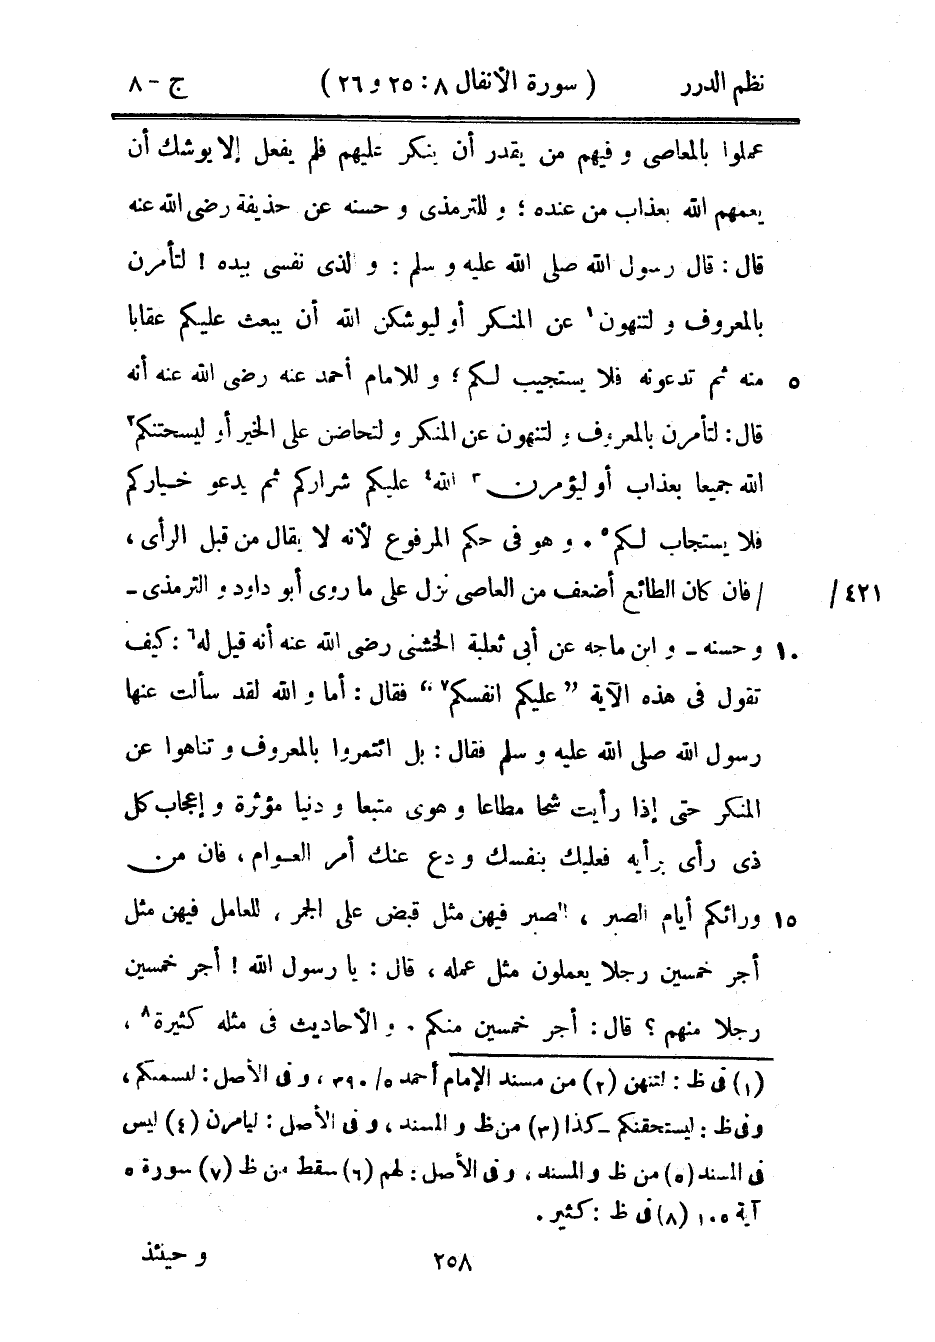 نظم الدرر ( سورة الأنفال ٨ : ٢٥ و ٢٦ ) ج - ٨
عملوا بالمعاصى و فيهم من يقدر أن ينكر عليهم فلم يفعل إلا يوشك أن
يعمهم الله بعذاب من عنده ؛ و للترمذى و حسنه عن حذيفة رضى الله عنه
قال : قال رسول الله صلى الله عليه و سلم : و الذى نفسى بيده ! لتأمرن
بالمعروف و لتنهون١ عن المنكر أو ليوشكن الله أن يبعث عليكم عقابا
٥ منه ثم تدعونه فلا يستجيب لكم ؛ و للامام أحمد عنه رضى الله عنه أنه
قال : لتأمرن بالمعروف و لتنهون عن المنكر و لتحاضن على الخير أو ليسحتنكم٢
الله جميعا بعذاب أو ليؤمرن٣ الله٤ عليكم شراركم ثم يدعو خياركم
فلا يستجاب لكم٥ . و هو فى حكم المرفوع لأنه لا يقال من قبل الرأى ،
٤٢١/ / فان كان الطائع أضعف من العاصى نزل على ما روى أبو داود و الترمذى ـ
١٠ و حسنه ـ و ابن ماجه عن أبى ثعلبة الخشنى رضى الله عنه أنه قيل له٦ : كيف
تقول فى هذه الآية ” عليكم انفسكم٧ “ فقال : أما و الله لقد سألت عنها
رسول الله صلى الله عليه و سلم فقال : بل ائتمروا بالمعروف و تناهوا عن
المنكر حتى إذا رأيت شحا مطاعا و هوى متبعا و دنيا مؤثرة و إعجاب كل
ذى رأى برأيه فعليك بنفسك و دع عنك أمر العوام ، فان من
١٥ ورائكم أيام الصبر ، الصبر فيهن مثل قبض على الجمر ، للعامل فيهن مثل
أجر خمسين رجلا يعملون مثل عمله ، قال : يا رسول الله ! أجر خمسين
رجلا منهم ؟ قال : أجر خمسين منكم . و الأحاديث فى مثله كثيرة٨ ،
(١) فى ظ : لتنهن (٢) من مسند الإمام أحمد ٥/ ٣٩٠ ، و فى الأصل : ليسمكم ،
و فى ظ : ليستحقنكم ـ كذا (٣) من ظ و المسند ، و فى الأصل : ليامرن (٤) ليس
فى المسند (٥) من ظ و المسند ، و فى الأصل : لهم (٦) سقط من ظ (٧) سورة ٥
آية ١٠٥ (٨) فى ظ : كثير .
٢٥٨ و حينئذ